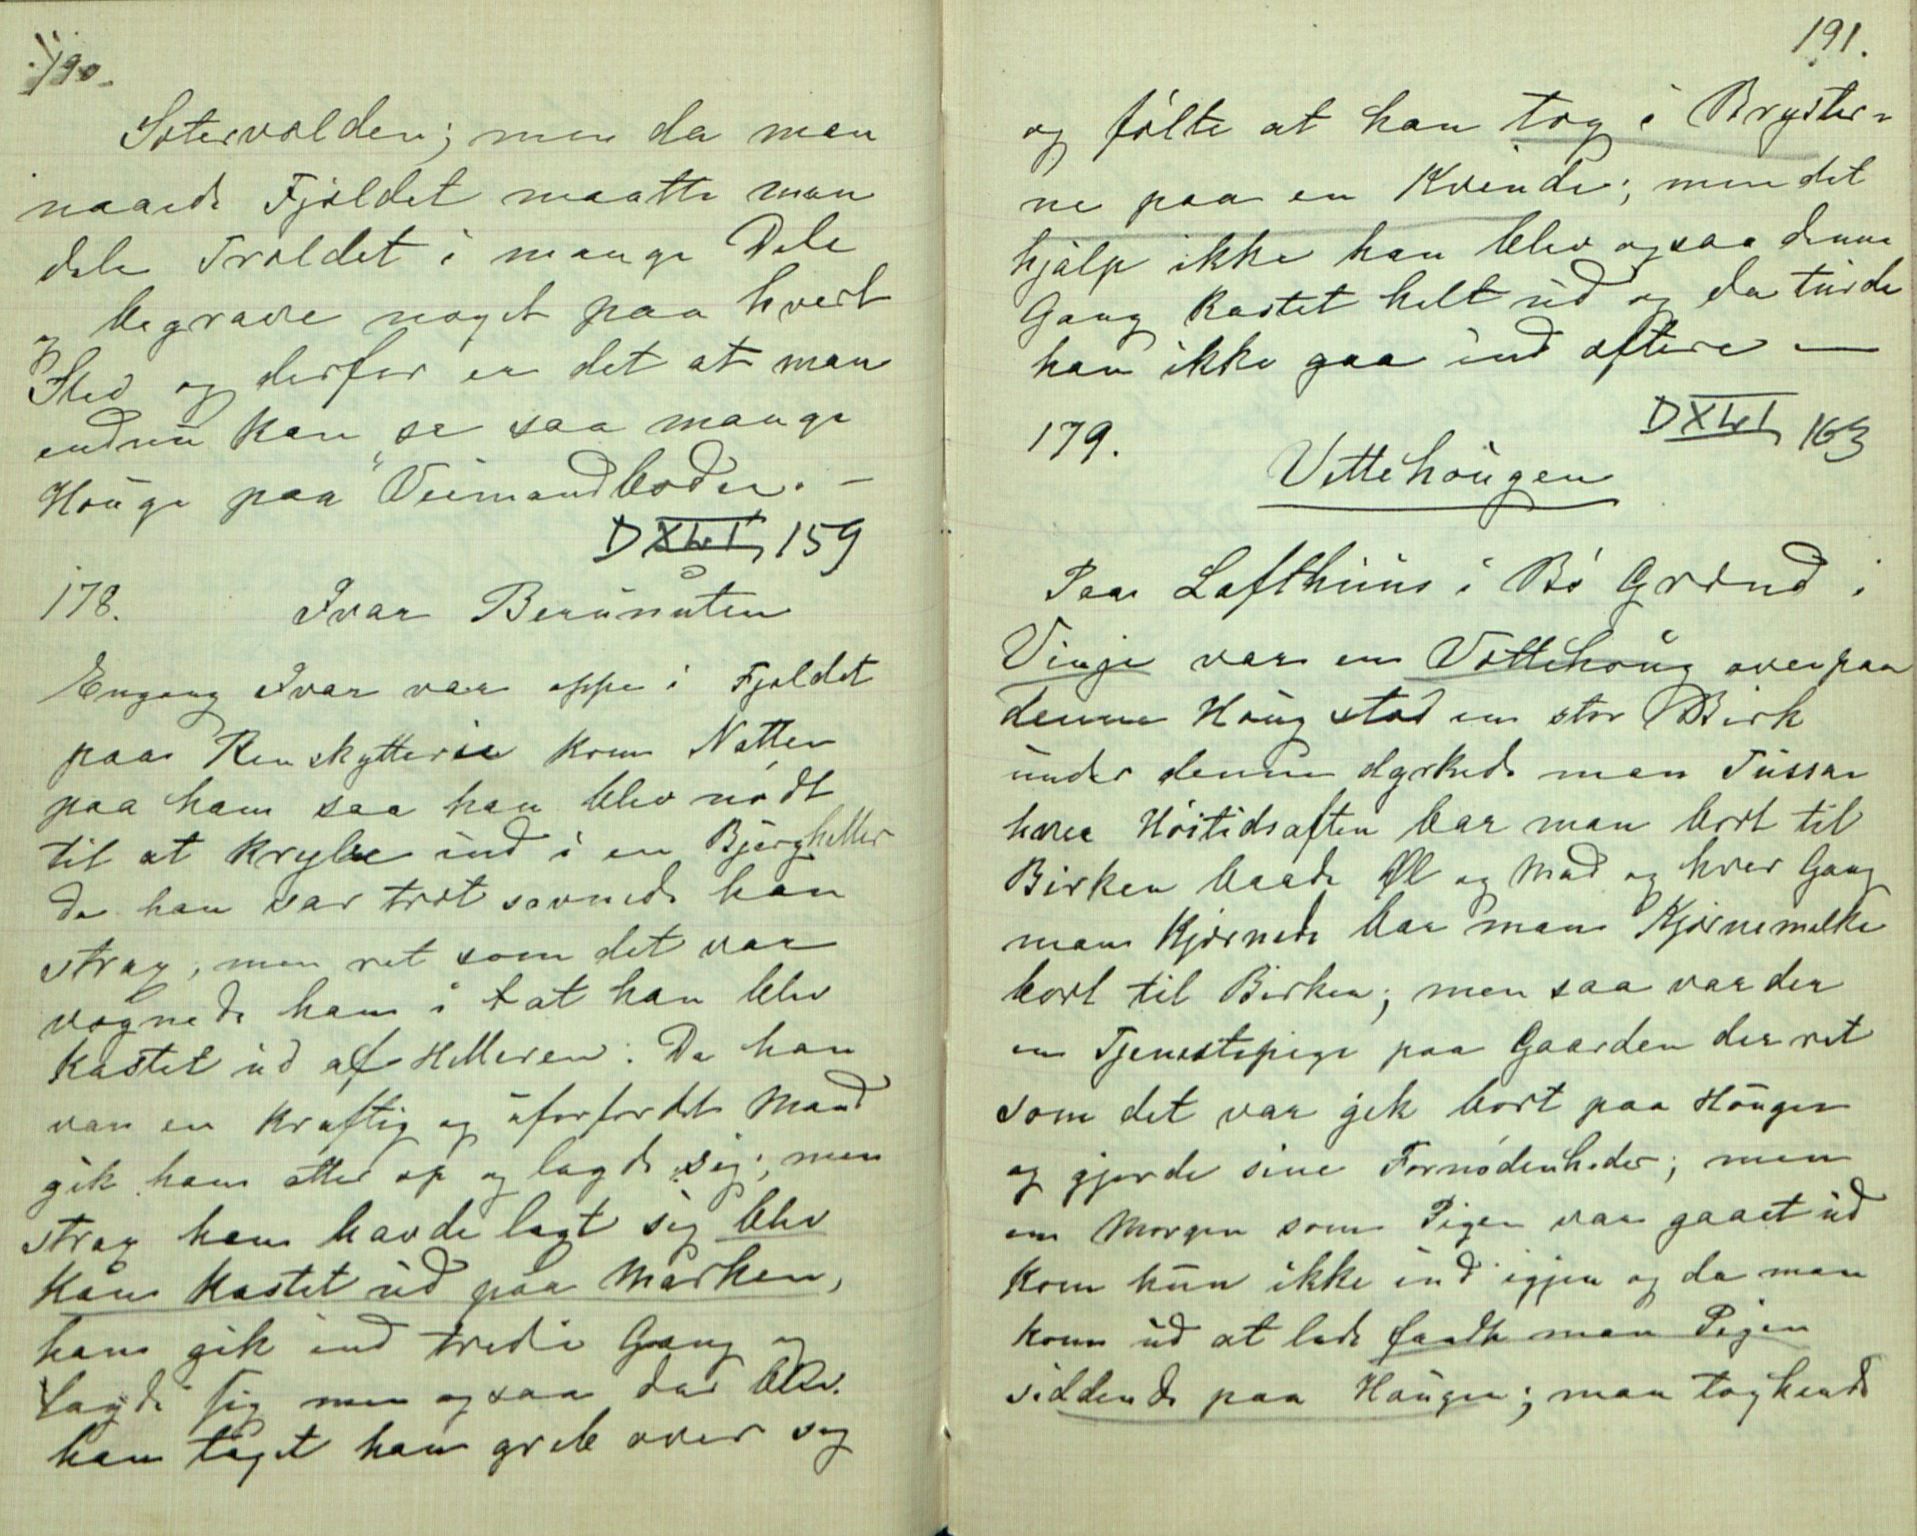 190.
Sætervolden; men da man
naaede Fjeldet maatte man
dele Troldet i mange Dele
og begrave noget paa hvert
Sted og derfor er det at man
endnu kan se saa mange
Houge paa "Veimandboden. –
DXLVI, 159
178. Ivar Berunuten
Engang Ivar var oppe i Fjeldet
paa Renskytterie kom Natten
paa ham saa han blev nødt
til at krybe ind i en Bjergheller
da han var træt sovnede han
strax, men ret som det var
vognede han i at han blev
kastet ud af Helleren. Da han
var en kraftig og uforfærdet Mand
gik han atter op og lagde sig; men
strax han havde lagt sig blev
han kastet ud paa Marken,
han gik ind tredie Gang og
lagde sig men ogsaa da blev
han taget han greb over sig
191.
og følte at han tog i Bryster=
ne paa en Kvinde; men det
hjalp ikke han blev ogsaa denne
Gang kastet helt ud og da turde
han ikke gaa ind oftere —
DXLVI, 163
179.
Vettehougen
Paa Lofthuus i Bø Grænd i
Vinje var en Vættehoug ovenpaa
denne Houg stod en stor Birk
under denne dyrkede man Tussar
hver Høitidsaften bar man bort til
Birken baade Øl og Mad og hver Gang
man kjernede bar man Kjernemelke
bort til Birken; men saa var der
en Tjenestepige paa Gaarden der ret
som det var gik bort paa Hougen
og gjorde sine Fornødenheder; men
en Morgen som Pigen var gaaet ud
kom hun ikke ind igjen og da man
kom ud at lede fandt man Pigen
siddende paa Hougen; man tog hende